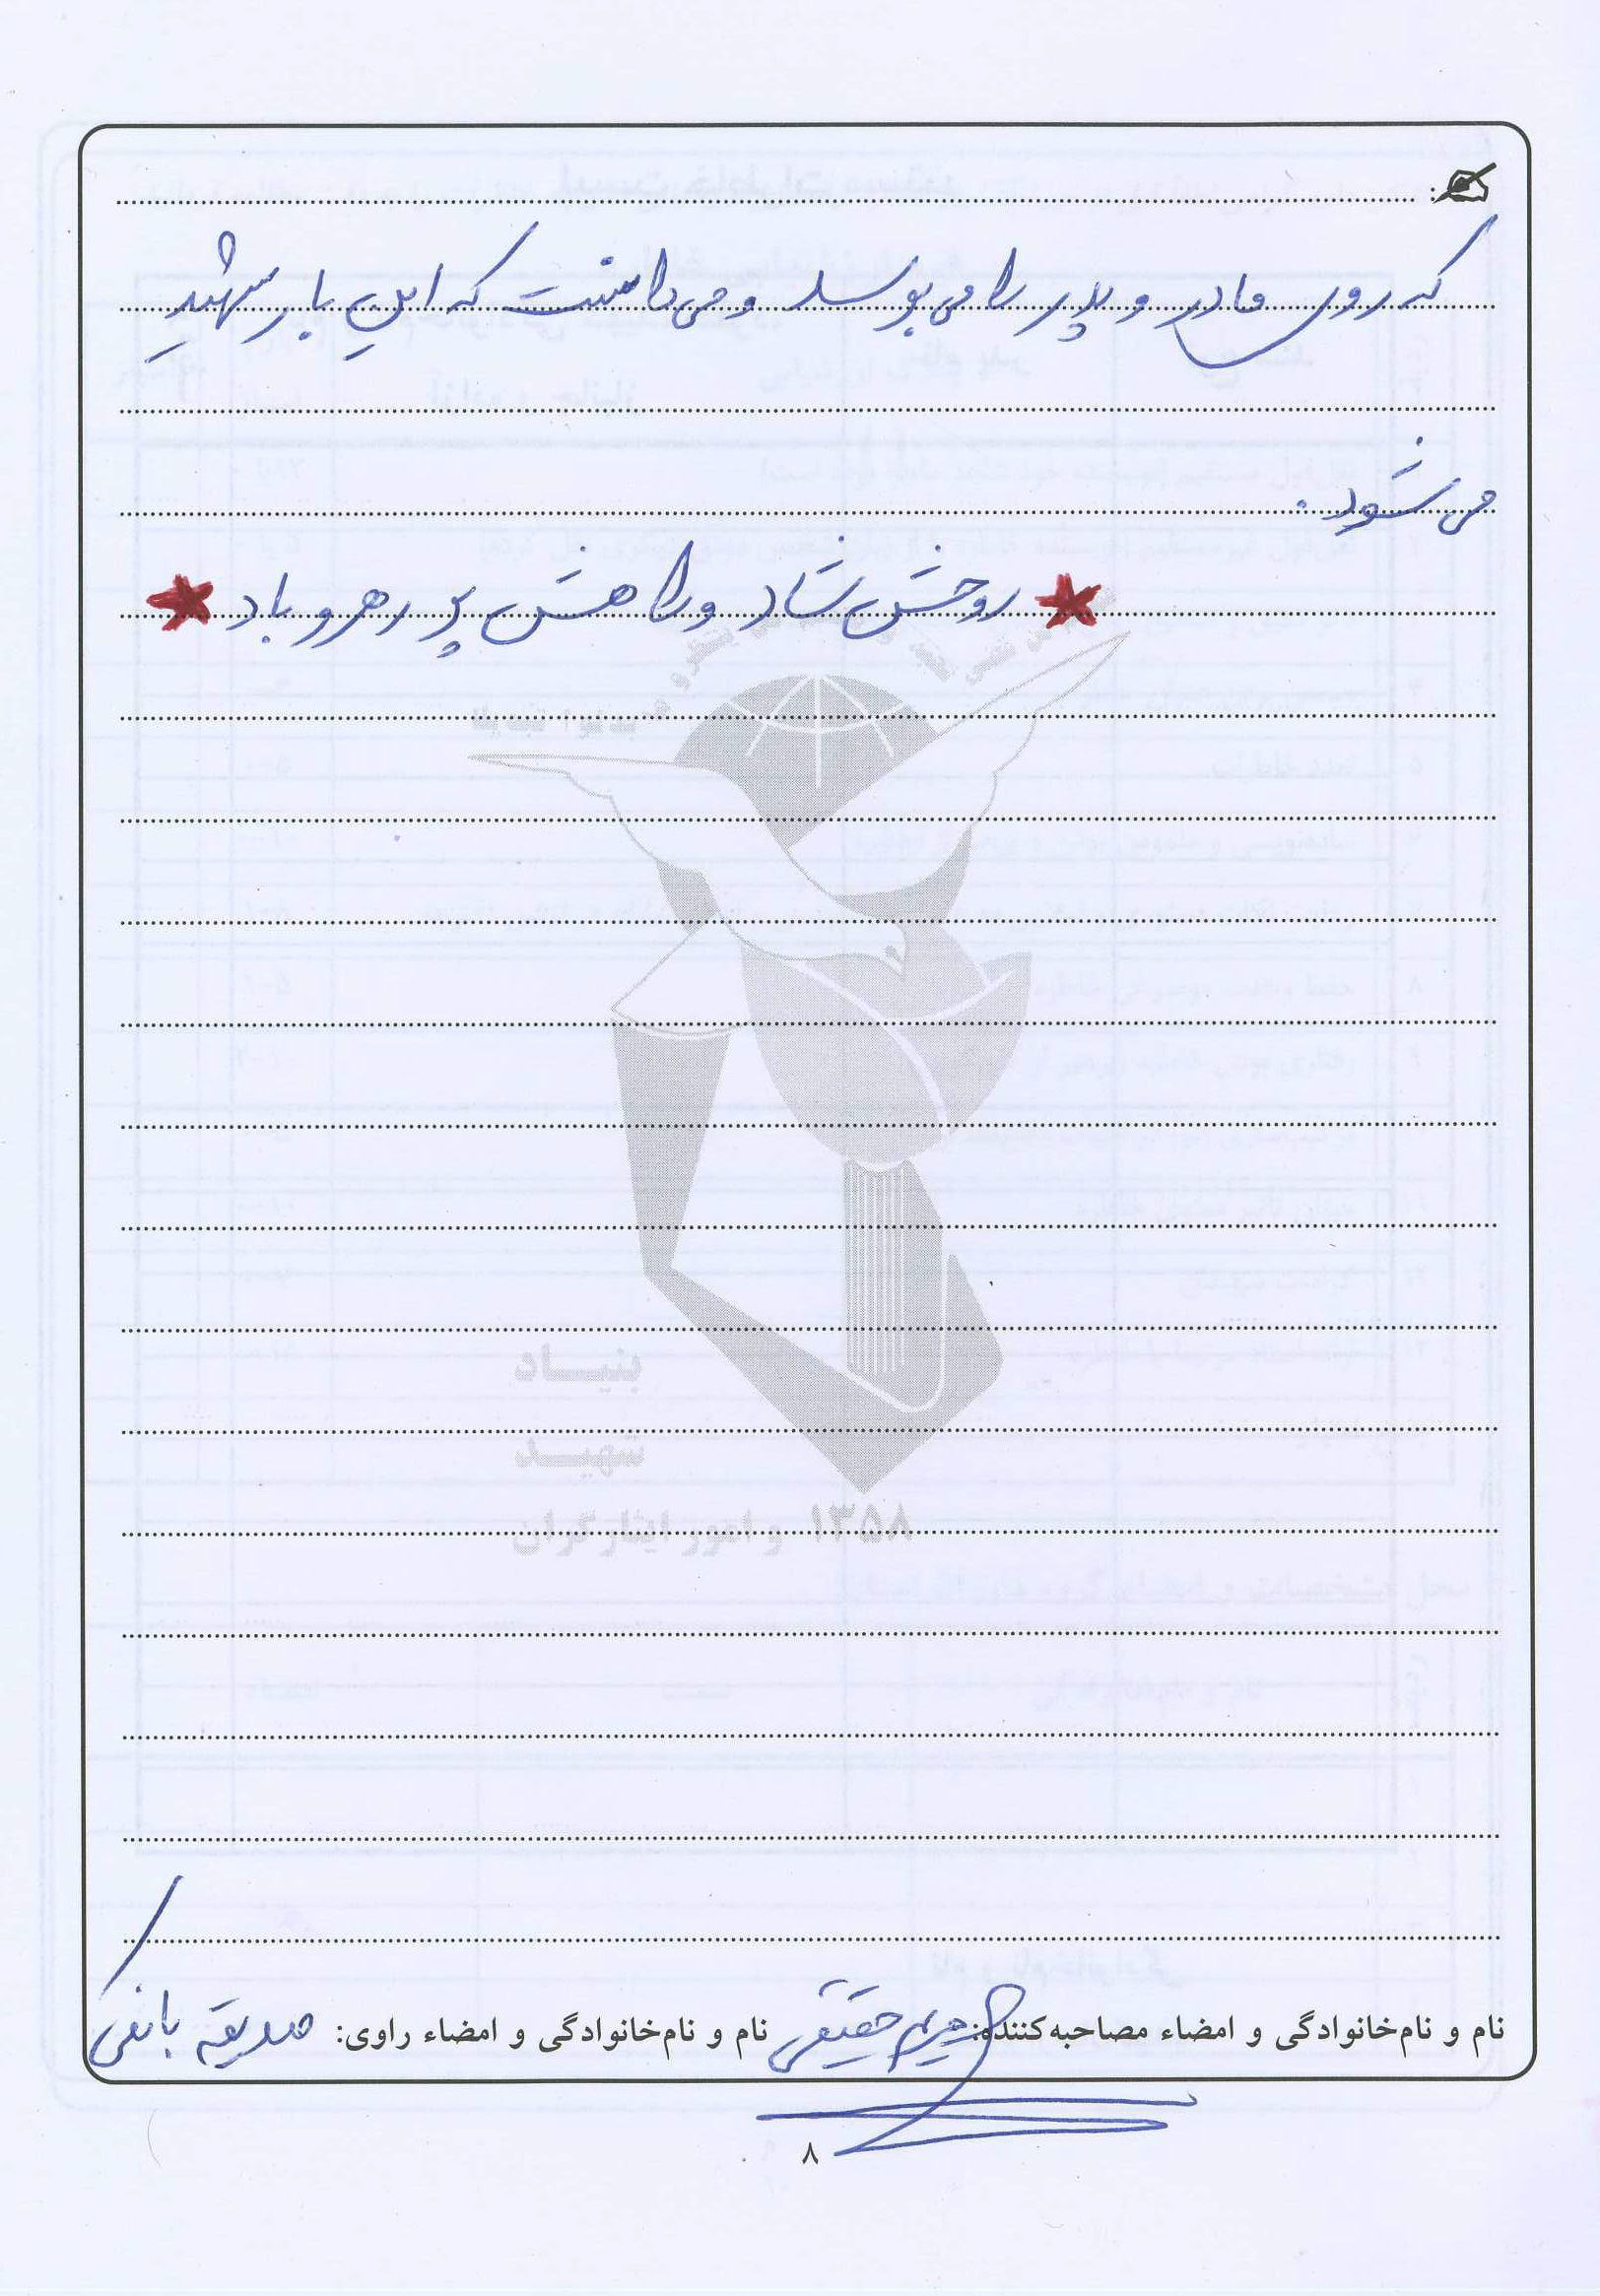 که روی مادر و پدر را می بوسد و می دانست که این بار شهید
می شود.
روحش شاد و راهش پر رهرو باد
بنیاد
شهید
و امور ایثارگران ۱۳۵۸
نام و نام‌خانوادگی و امضاء مصاحبه‌کننده: مریم حقیقی نام و نام‌خانوادگی و امضاء راوی: صدیقه
۸